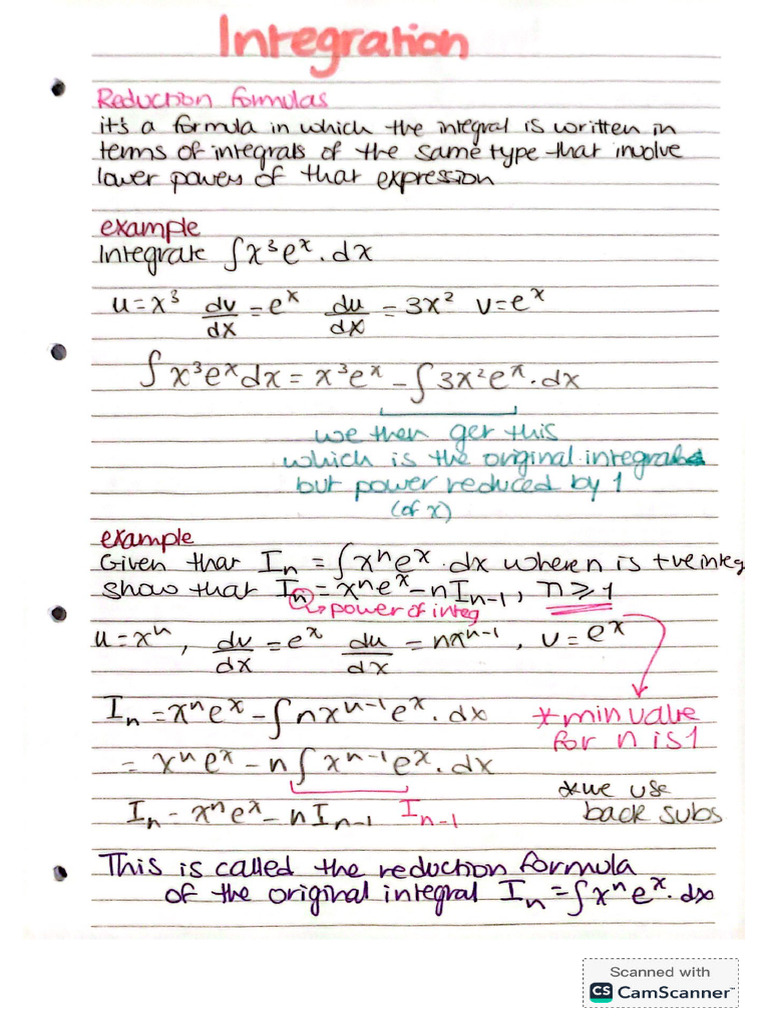 Integration
Reduction formulas
it's a formula in which the integral is written in
terms of integrals of the same type that involve
lower powers of that expression
example
Integrate ∫x³eˣ.dx
u=x³ dv/dx=eˣ du/dx=3x² v=eˣ
∫x³eˣdx=x³eˣ-∫3x²eˣ.dx
we then get this
which is the original integral
but power reduced by 1
(of x)
example
Given that Iₙ=∫xⁿeˣ.dx where n is +ve integ
show that Iₙ=xⁿeˣ-nIₙ₋₁, n≥1
→power of integ
u=xⁿ, dv/dx=eˣ du/dx=nxⁿ⁻¹, v=eˣ
Iₙ=xⁿeˣ-∫nxⁿ⁻¹eˣ.dx
*min value
for n is 1
=xⁿeˣ-n∫xⁿ⁻¹eˣ.dx
*we use
back subs
Iₙ=xⁿeˣ-nIₙ₋₁ Iₙ₋₁
This is called the reduction formula
of the original integral Iₙ=∫xⁿeˣ.dx
Scanned with
CS CamScanner™